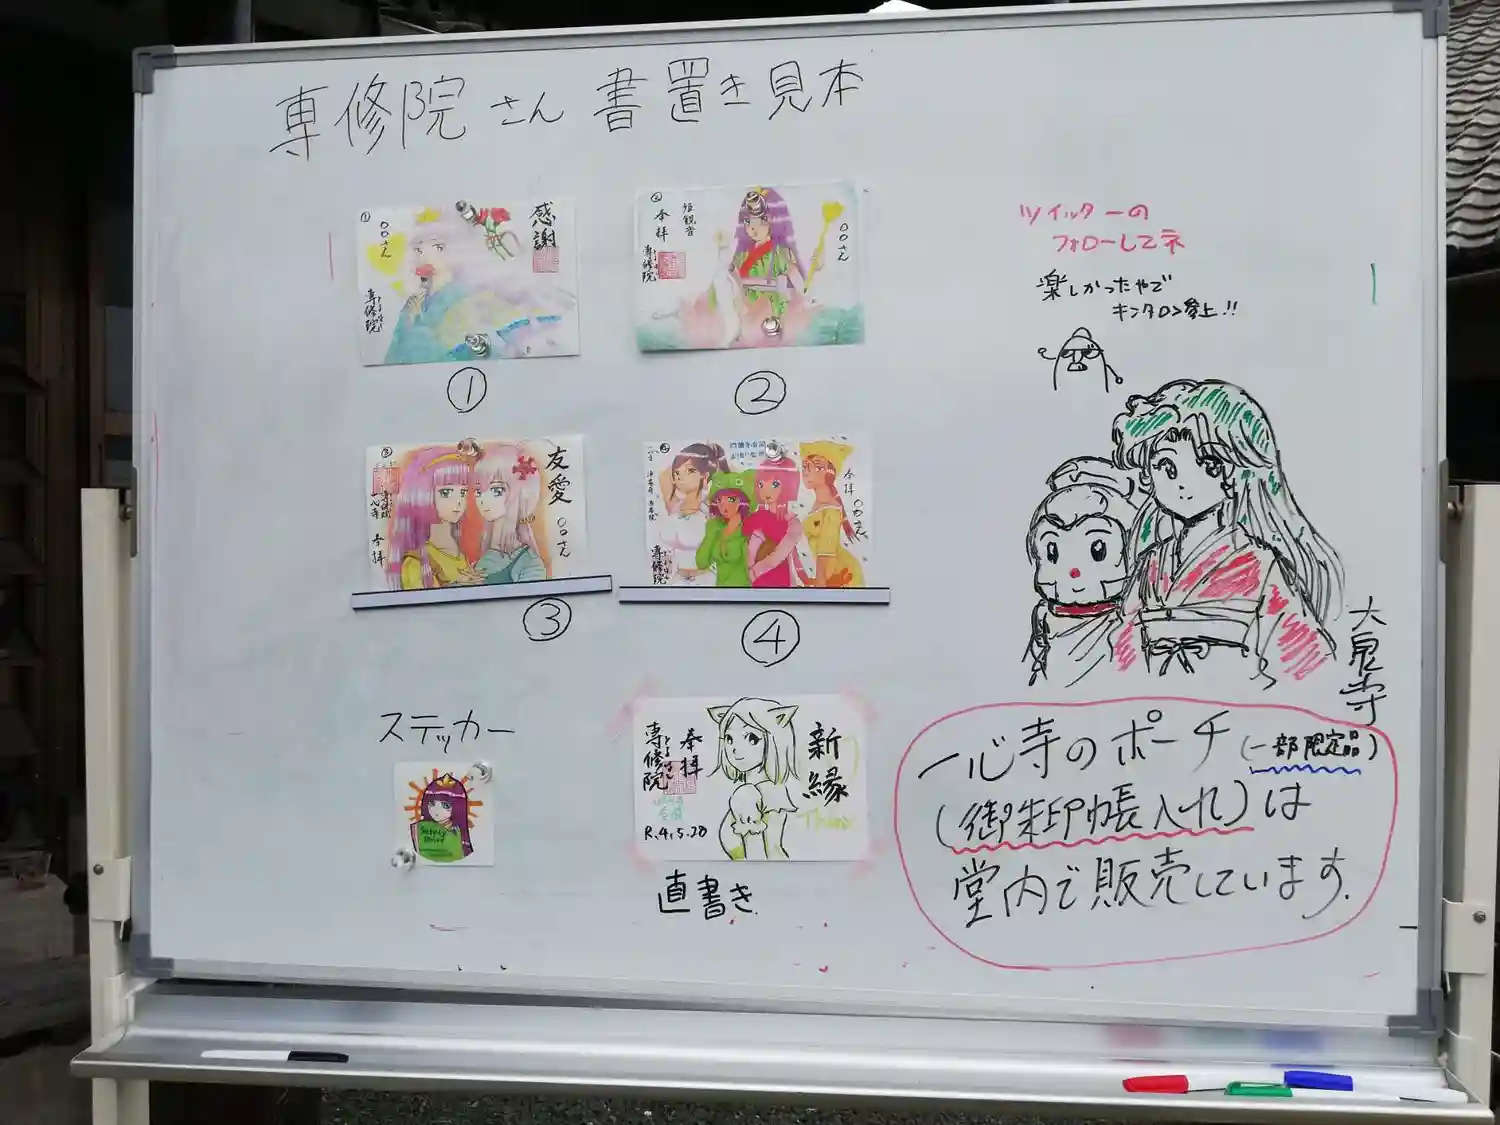 専修院さん書置き見本
①
〇〇さん
感謝
専修院
①
②
奉拝
〇〇さん
専修院
②
③
友愛
〇〇さん
奉拝
③
奉拝
〇〇さん
専修院
④
ステッカー
新縁
奉拝
専修院
R.4.5.28
直書き
ツイッターの
フォローしてネ
楽しかったやで
キンタロン参上!!
大泉寺
一心寺のポーチ(一部限定品)
(御朱印帳入れ)は
堂内で販売しています.